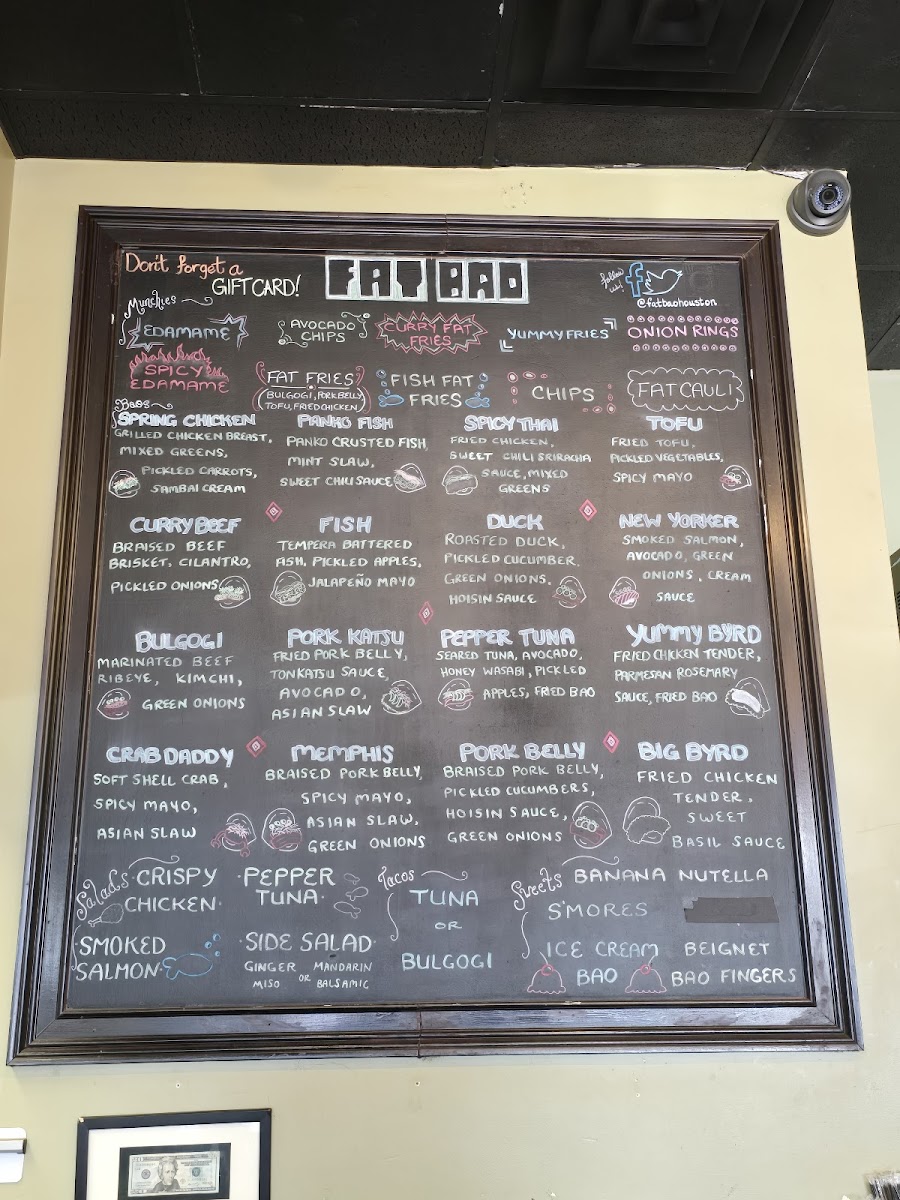 Don't forget a
GIFT CARD!
FAT BAO
follow us!
@fatbaohouston
Munchies
EDAMAME
AVOCADO
CHIPS
CURRY FAT
FRIES
YUMMY FRIES
ONION RINGS
SPICY
EDAMAME
FAT FRIES
BULGOGI, PORK BELLY
TOFU, FRIED CHICKEN
FISH FAT
FRIES
CHIPS
FAT CAULI
Baos
SPRING CHICKEN
GRILLED CHICKEN BREAST,
MIXED GREENS,
PICKLED CARROTS,
SAMBAI CREAM
PANKO FISH
PANKO CRUSTED FISH
MINT SLAW,
SWEET CHILI SAUCE
SPICY THAI
FRIED CHICKEN,
SWEET CHILI SRIRACHA
SAUCE, MIXED
GREENS
TOFU
FRIED TOFU,
PICKLED VEGETABLES,
SPICY MAYO
CURRY BEEF
BRAISED BEEF
BRISKET, CILANTRO,
PICKLED ONIONS
FISH
TEMPERA BATTERED
FISH, PICKLED APPLES,
JALAPEÑO MAYO
DUCK
ROASTED DUCK,
PICKLED CUCUMBER,
GREEN ONIONS,
HOISIN SAUCE
NEW YORKER
SMOKED SALMON,
AVOCADO, GREEN
ONIONS, CREAM
SAUCE
BULGOGI
MARINATED BEEF
RIBEYE, KIMCHI,
GREEN ONIONS
PORK KATSU
FRIED PORK BELLY,
TONKATSU SAUCE,
AVOCADO,
ASIAN SLAW
PEPPER TUNA
SEARED TUNA, AVOCADO,
HONEY WASABI, PICKLED
APPLES, FRIED BAO
YUMMY BYRD
FRIED CHICKEN TENDER,
PARMESAN ROSEMARY
SAUCE, FRIED BAO
CRAB DADDY
SOFT SHELL CRAB,
SPICY MAYO,
ASIAN SLAW
MEMPHIS
BRAISED PORK BELLY,
SPICY MAYO,
ASIAN SLAW,
GREEN ONIONS
PORK BELLY
BRAISED PORK BELLY,
PICKLED CUCUMBERS,
HOISIN SAUCE,
GREEN ONIONS
BIG BYRD
FRIED CHICKEN
TENDER,
SWEET
BASIL SAUCE
Salads
·CRISPY
CHICKEN·
·PEPPER
TUNA·
SMOKED
SALMON·
·SIDE SALAD·
GINGER
MISO
OR
MANDARIN
BALSAMIC
Tacos
TUNA
OR
BULGOGI
Sweets
BANANA NUTELLA
S'MORES
ICE CREAM
BAO
BEIGNET
BAO FINGERS